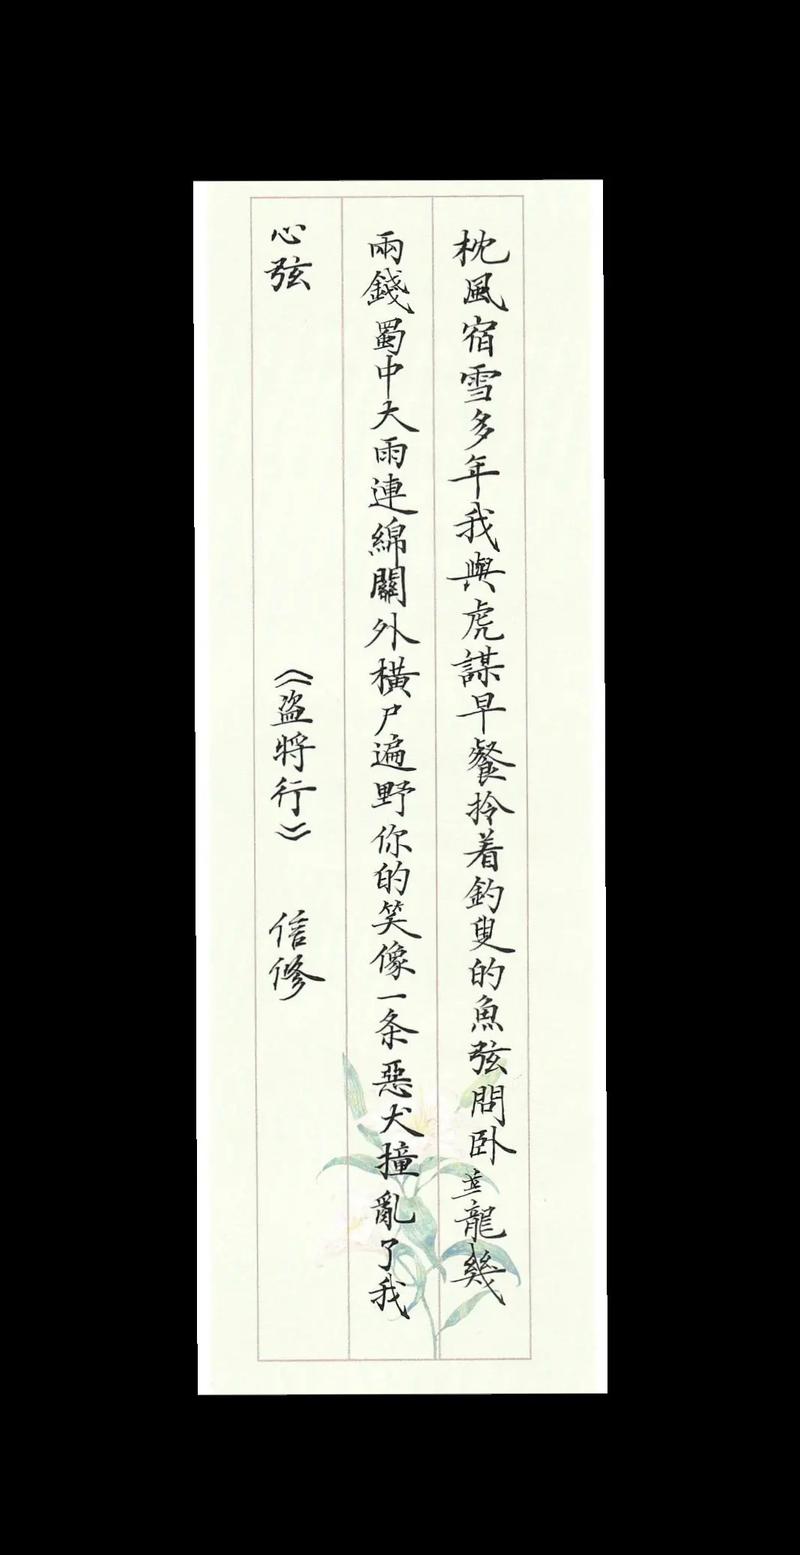 枕風宿雪多年我與虎謀早餐拎着釣叟的魚弦問卧龍幾
兩錢蜀中大雨連綿關外橫尸遍野你的笑像一条惡犬撞亂了我
心弦 《盗将行》 信修